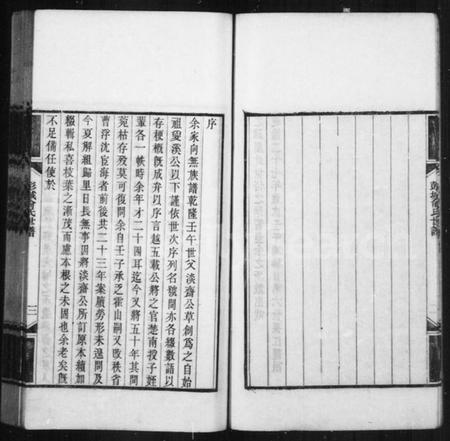 序
余家向無族譜乾隆壬午世父淡齋公草創為之自始
祖夔溪公以下謹依世次序列名號間亦各綴數語以
存梗概既成弁以序言越五載公將之官楚南授子姪
輩各一帙時余年才二十四耳迄今又將五十年其間
菀枯存歿莫可復問余自壬子承乏霍山嗣又改秩省
曹浮沈宦海者前後共二十三年案牘勞形未遑問及
今夏解組歸里日長無事因將淡齋公所訂原本續加
綴輯私喜枝葉之漸茂而慮本根之未固也余老矣既
不足備任使於
彭城 氏世譜
彭城 氏世譜